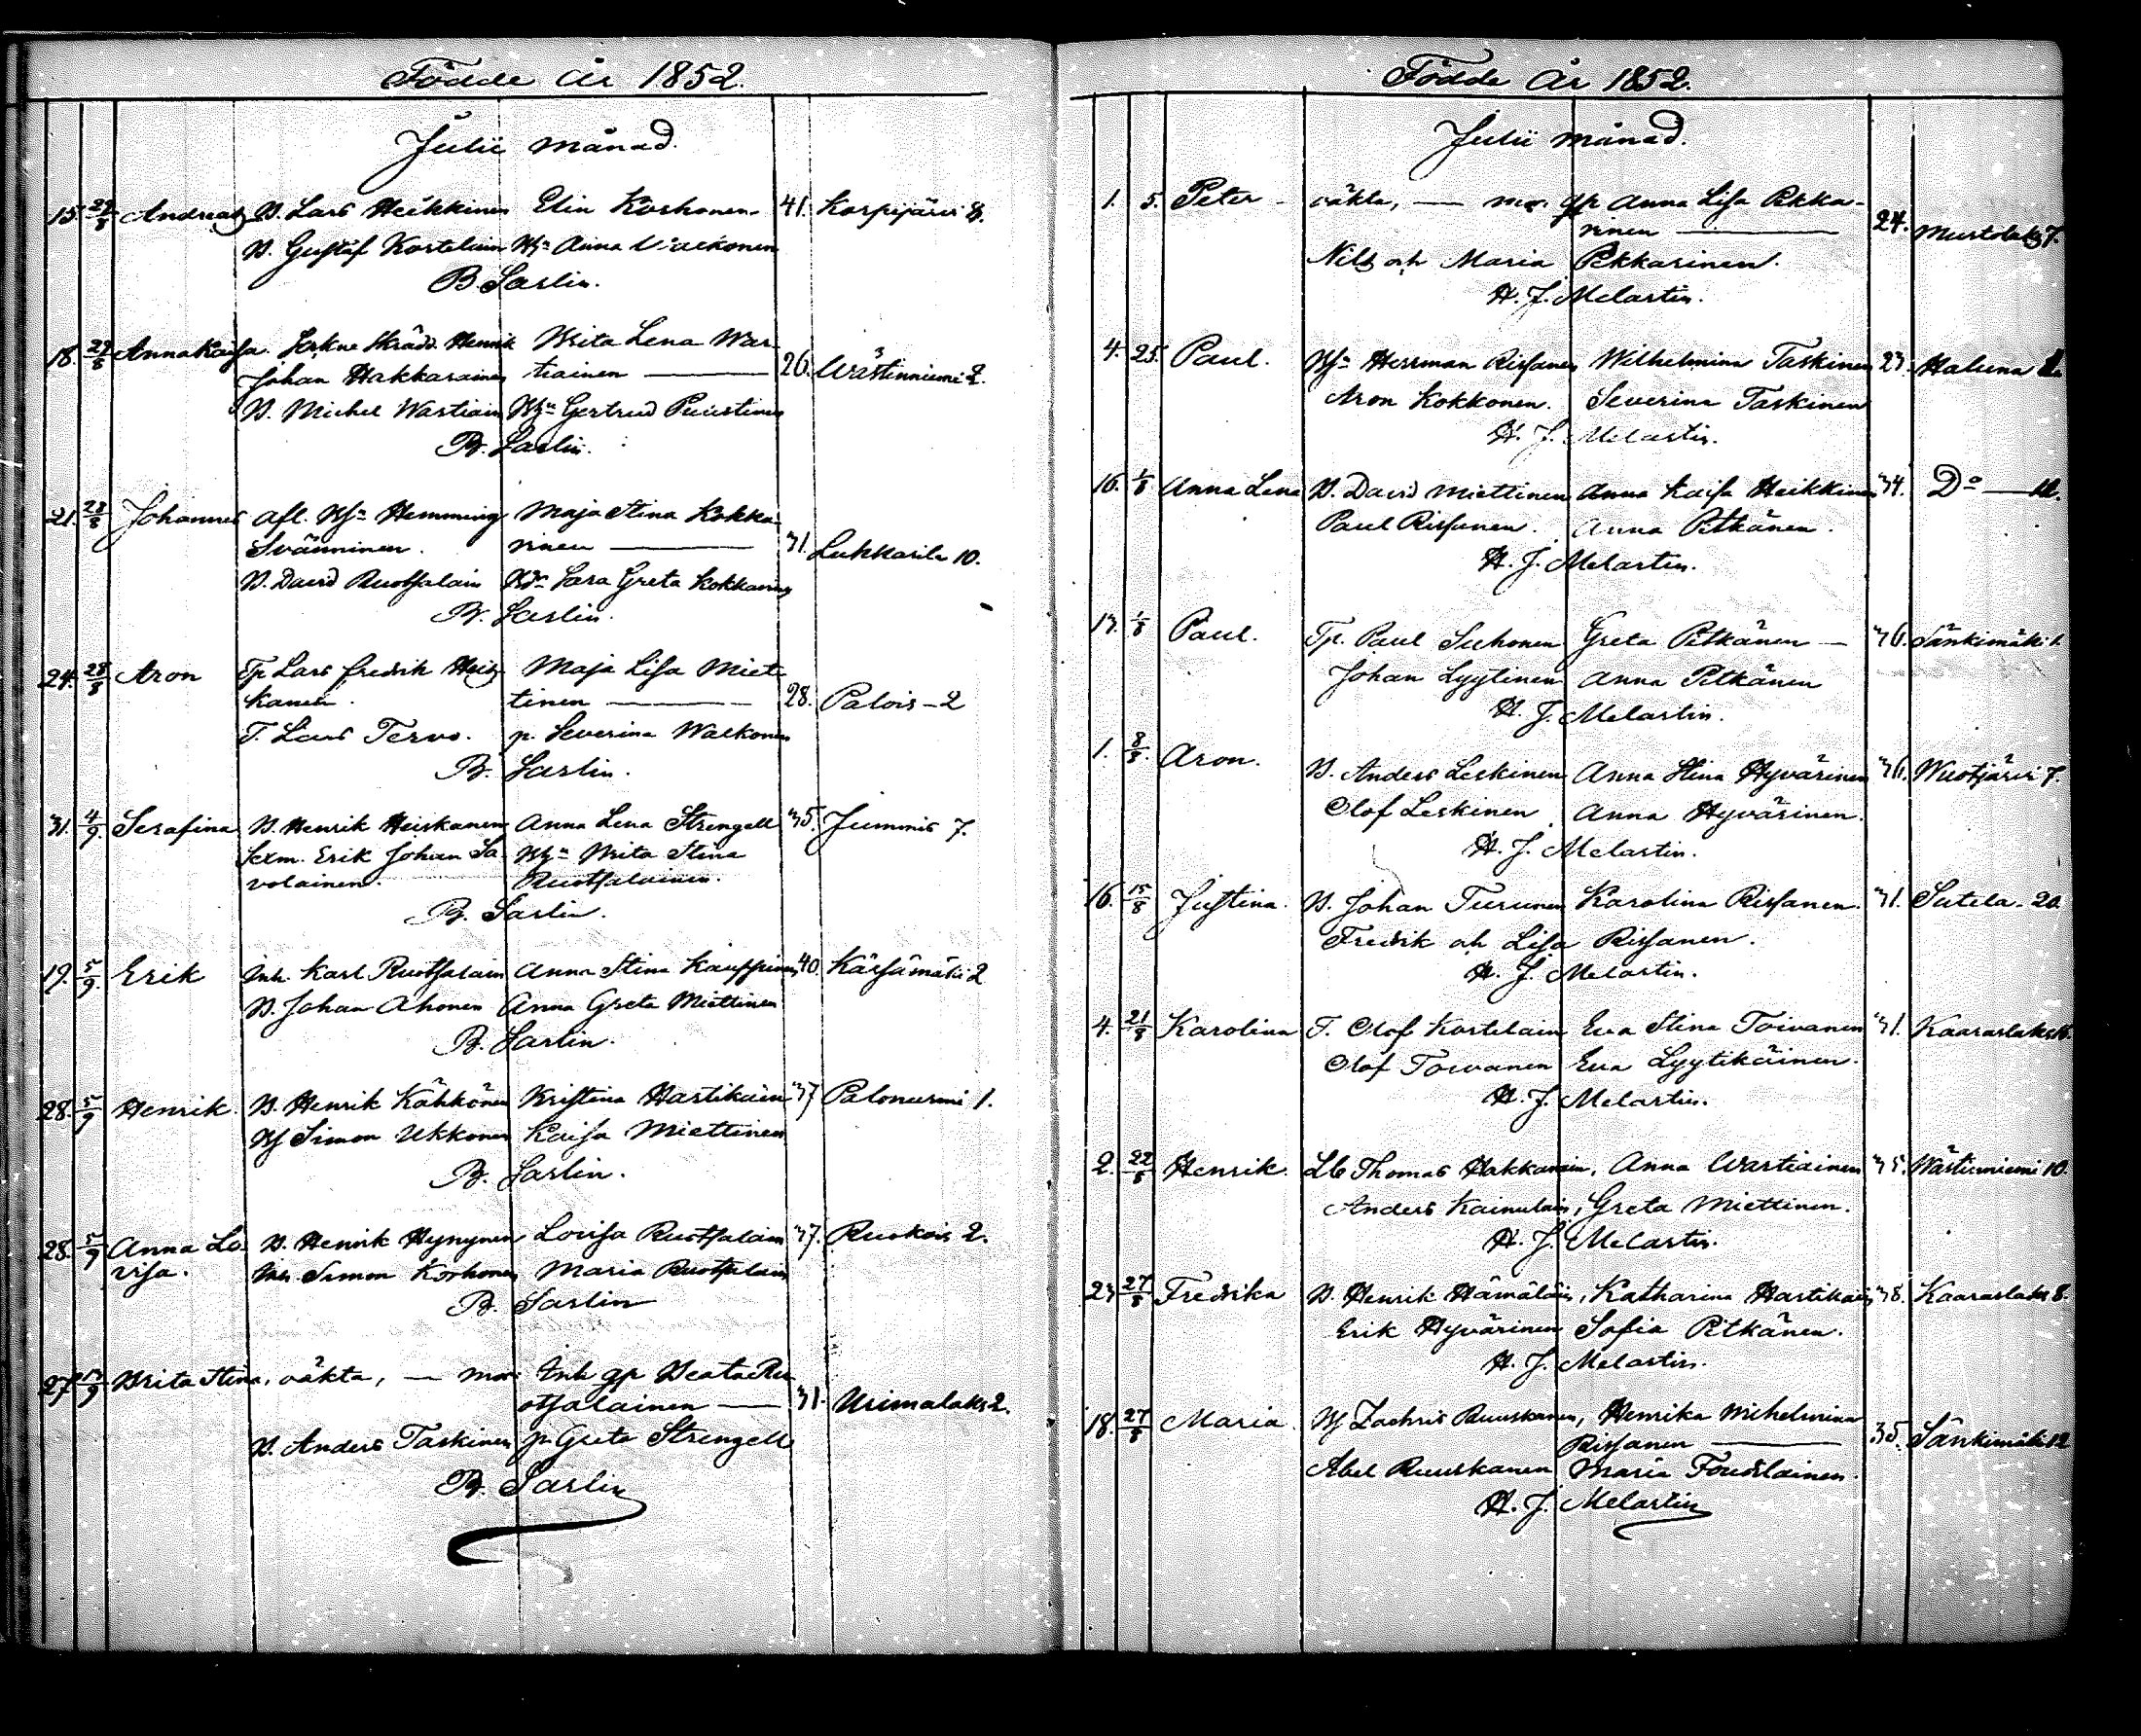 Födde År 1852.
Julii månad.
15. 22/8 Andreas B. Lars Heikkinen Elin Korhonen 41. Korpijärvi 8.
B. Gustaf Kortelain Hu Anna
B. Sarlin.
18. 22/8 Anna Kaisa. Sokne Skrädd. Henrik Brita Lena War-
Johan Hakkarainen tiainen — 26. Wästinniemi 2.
B. Michel Wastiain Hu Gertrud Puustinen
B. Sarlin.
21. 28/8 Johannes afl. Hu Hemming Maja Stina Kokka-
Svänninen. rinen — 31. Lukkarila 10.
B. David Ruotsalain Sara Greta Kokkarinen
B. Sarlin.
24. 28/8 Aron Tp Lars Fredrik Heis- Maja Lisa Miet-
kanen. tinen — 28. Palois - 2
T. Lars Tervo. p. Severina Walkonen
B. Sarlin.
31. 4/9. Serafina B. Henrik Heiskanen Anna Lena Strengell 35. Jummis 7.
Sexm. Erik Johan Sa- Hu Brita Stina
volainen. Ruotsalainen.
B. Sarlin.
19. 5/9. Erik Inh. Karl Ruotsalain Anna Stina Kauppinen 40. Kärsämäki 2
B. Johan Ahonen Anna Greta Miettinen
B. Sarlin.
28. 5/9 Henrik. B. Henrik Kähkönen Kristina Hartikain 37 Palonurmi 1.
Simon Ukkonen Kaisa Miettinen
B. Sarlin.
28. 5/9 Anna Lo- B. Henrik Hynynen Lovisa Ruotsalain 37. Ruokois 2.
visa. Inh. Simon Korhonen Maria Ruotsalain
B. Sarlin
27. /9 Brita Stina, oäkta, — mor Inh qp Beata Ru-
otsalainen — 31. Urimalaks 2.
B. Anders Taskinen p. Greta Strengell
B. Sarlin
Födde År 1852.
Julii månad.
1. 5. Peter - oäkta, — mor. qp Anna Lisa Pekka-
rinen — 24. Mustolaks 7.
Nils och Maria Pekkarinen.
H. J. Melartin.
4. 25. Paul. Herrman Rissanen Wilhelmina Taskinen 23. Haluna
Aron Kokkonen. Severina Taskinen
H. J. Melartin.
16. 1/8 Anna Lena B. David Miettinen Anna Kaisa Heikkinen 34. Do — 12.
Paul Rissanen. Anna Pitkänen.
H. J. Melartin.
13. 1/8 Paul. Tp. Paul Suhonen Greta Pitkänen — 36. Sänkimäki 1.
Johan Lyytinen Anna Pitkänen
H. J. Melartin.
1. 8/8. Aron. B. Anders Leskinen Anna Stina Hyvärinen 36. Wuotjärvi 7.
Olof Leskinen Anna Hyvärinen.
H. J. Melartin.
16. 15/8 Justina. B. Johan Turunen Karolina Rissanen. 31. Sutela - 20.
Fredrik och Lisa Rissanen.
H. J. Melartin.
4. 21/8 Karolina T. Olof Kortelain Eva Stina Toivanen 31. Kaaraslaks 16.
Olof Toivanen Eva Lyytikäinen.
H. J. Melartin.
2. 22/8 Henrik. Lb Thomas Hakkarain, Anna Wartiainen 35. Wästinniemi 10.
Anders Kainulain, Greta Miettinen.
H. J. Melartin.
23 27/8 Fredrika B. Henrik Hämäläin, Katharina Hartikain 38. Kaaraslaks 8.
Erik Hyvärinen Sofia Pitkänen.
H. J. Melartin.
18. 27/8 Maria. Zachris Ruuskanen, Henrika Wilhelmina
Rissanen — 35. Sänkimäki 12
Abel Ruuskanen Maria
H. J. Melartin